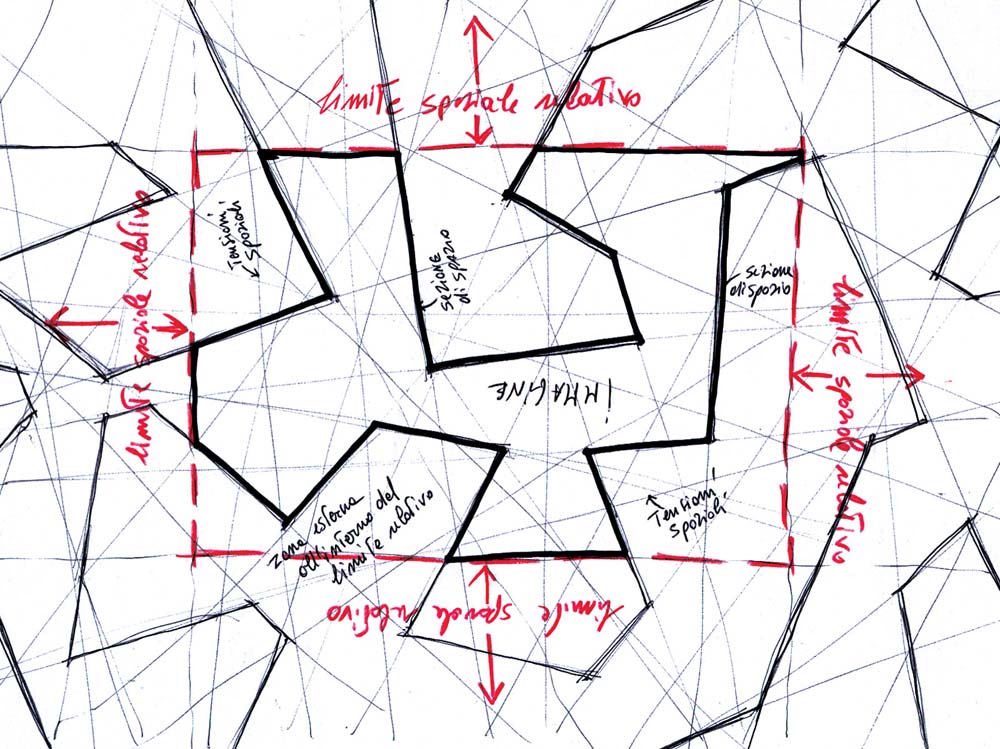 limite spaziale relativo
tensioni
spaziali
limite spaziale relativo
sezione
di spazio
sezione
di spazio
limite spaziale relativo
immagine
zona esterna
all'interno del
limite relativo
tensioni
spaziali
limite spaziale relativo